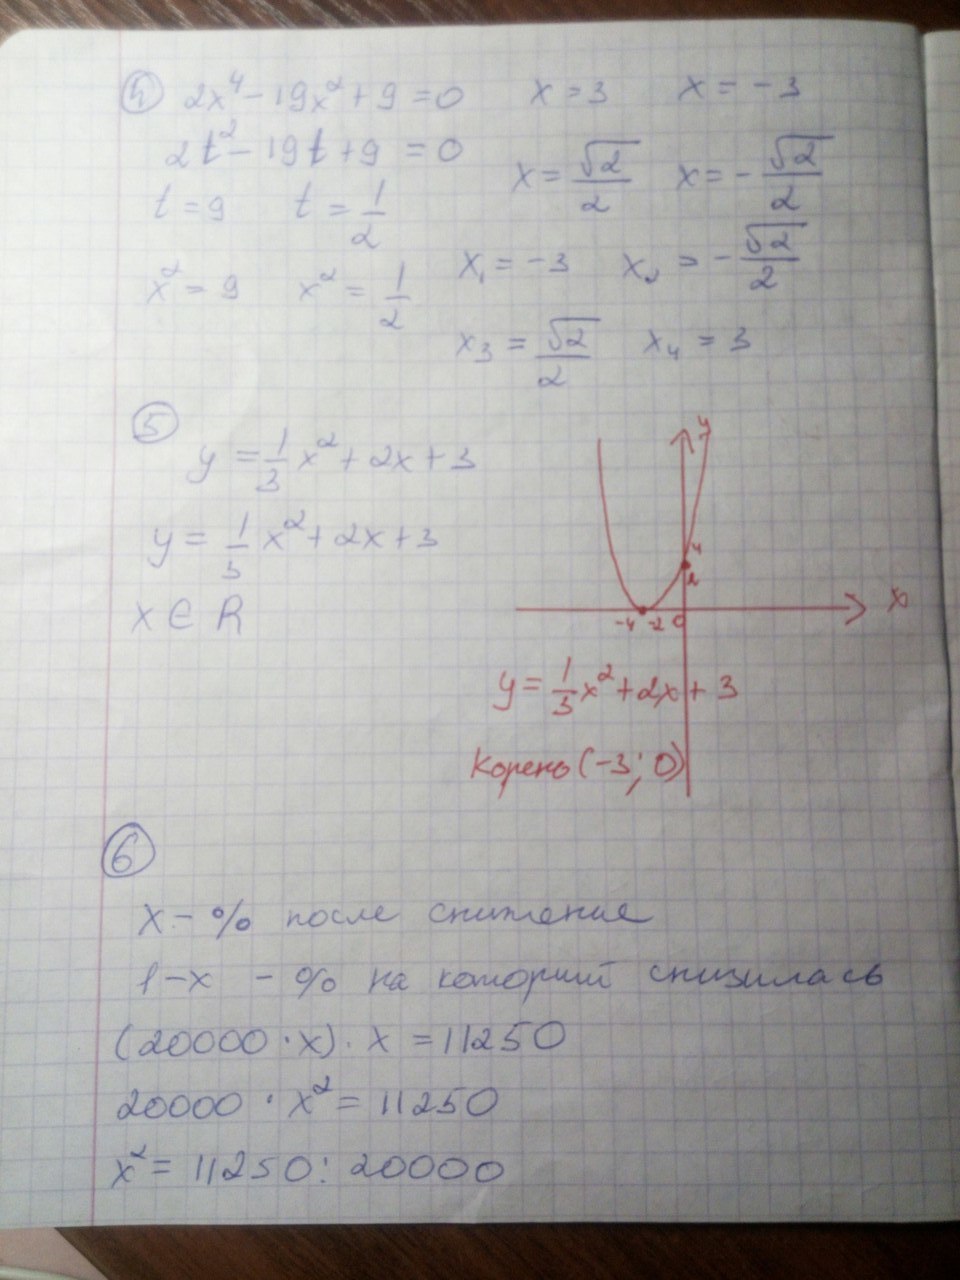 ④ 2x⁴ - 19x² + 9 = 0   x = 3   x = -3
2t² - 19t + 9 = 0
x = √2/2   x = -√2/2
t = 9   t = 1/2
x₁ = -3   x₂ = -√2/2
x² = 9   x² = 1/2
x₃ = √2/2   x₄ = 3
⑤
y = 1/3 x² + 2x + 3
y = 1/3 x² + 2x + 3
x ∈ R
y
4
2
x
-4 -2 0
y = 1/3 x² + 2x + 3
Корень (-3; 0)
⑥
x - % после снижение
1-x - % на который снизилась
(20000 · x) · x = 11250
20000 · x² = 11250
x² = 11250 : 20000